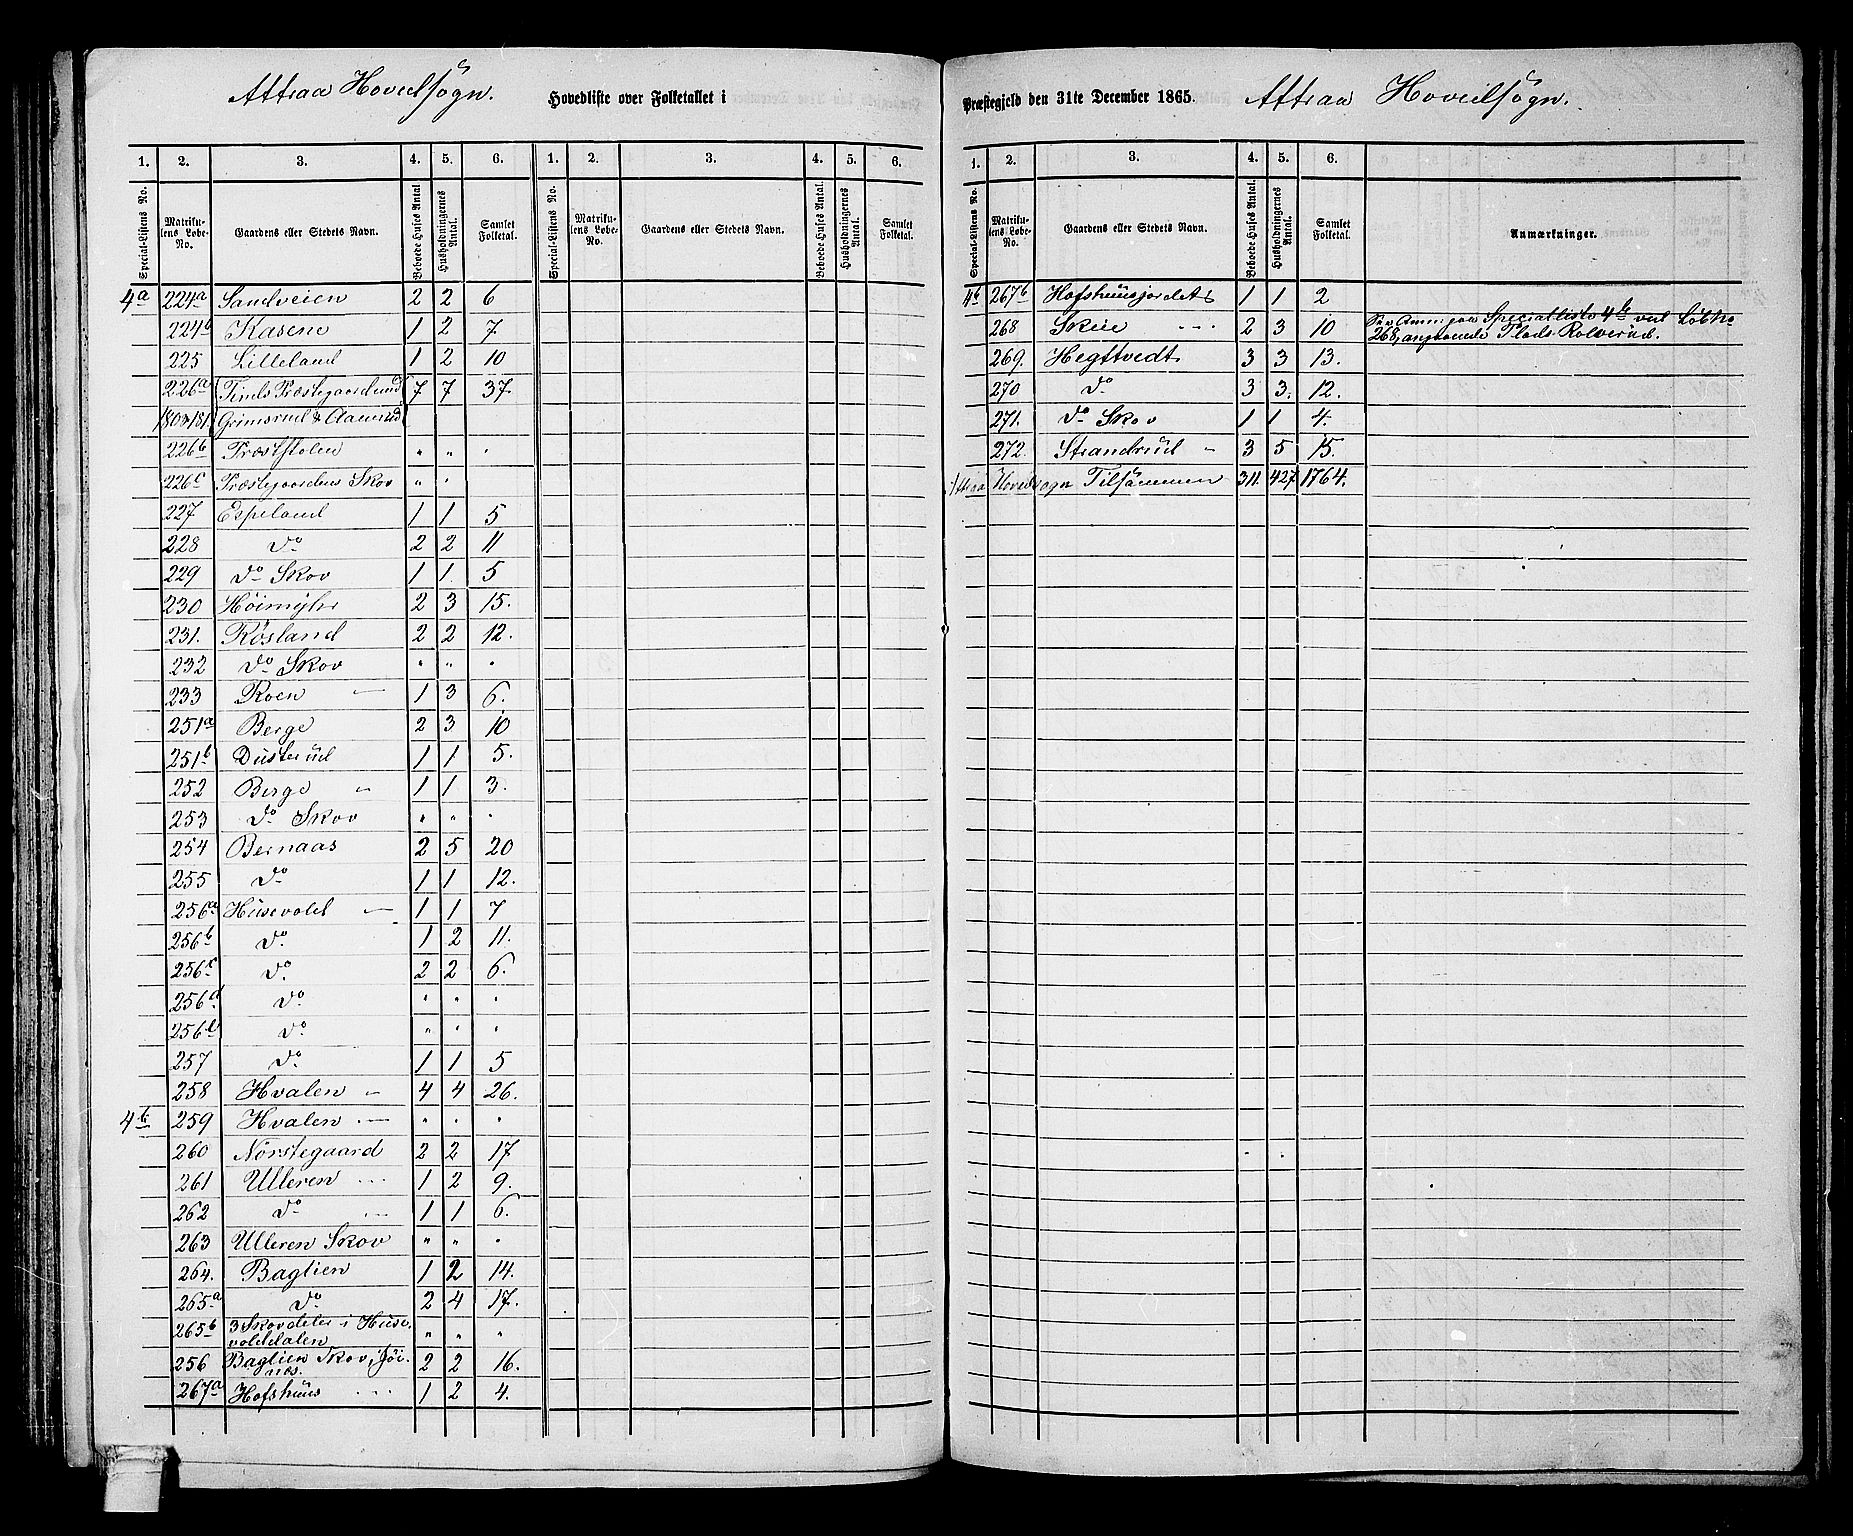 Attraa Hovedsøgn.
Hovedliste over Folketallet i
1. 2. 3. 4. 5. 6. 1. 2. 3. 4. 5. 6.
Special-Listens No. Matrikulens Løbe-No. Gaardens eller Stedets Navn. Beboede Huses Antal Husholdningernes Antal. Samlet Folketal. Special-Listens No. Matrikulens Løbe-No. Gaardens eller Stedets Navn. Beboede Huses Antal. Husholdningernes Antal. Samlet Folketal.
4a 224a Sandveien 2 2 6
224b Kasene 1 2 7
225 Lilleland 1 2 10
226a Tinds Præstegaard und 7 7 37
180&181 Grimsrud & Aamrud
226b Præststolen " " "
226c Præstegaardens Skov " "
227 Espeland 1 1 5
228 Do 2 2 11
229 Do Skov 1 1 5
230 Höimyhr 2 3 15.
231. Røsland 2 2 12.
232 Do Skov " " "
233 Roen 1 3 6.
251a Berge 2 3 10
251b Dusterud 1 1 5.
252 Berge " 1 1 3.
253 Do Skov " " "
254 Bernaas 2 5 20
255 Do 1 1 12.
256a Husevold 1 1 7
256b Do. 1 2 11.
256c Do. 2 2 6.
256d Do " " "
256e Do " " "
257 Do. 1 1 5
258 Hvalen " 4 4 26.
4b 259 Hvalen " " "
260 Nörstegaard 2 2 17
261 Ulleren 1 2 9.
262 Do 1 1 6.
263 Ulleren Skov " " "
264. Baglien 1 2 14.
265a Do 2 4 17.
265b 3 Skovdeler i Huse-
voldalen " " "
256 Baglien Skov, i Jöi-
nes. 2 2 16.
267a Hofshuus 1 2 4.
Præstegjeld den 31te December 1865. Attraa Hovedsøgn.
1. 2. 3. 4. 5. 6.
Special-Listens No. Matrikulens Løbe-No. Gaardens eller Stedets Navn. Beboede Huses Antal. Husholdningernes Antal. Samlet Folketal. Anmærkninger.
4b 267b Hofshuusjordet 1 1 2
268 Skeie 2 3 10 Specialliste 4b ved Løbno
268, angaaende Plads Rolverud.
269. Hegtvedt 3 3 13.
270 Do 3 3. 12.
271. Do Skov 1 1 4.
272. Strandrud " 3 5 15.
Attraa Hovedsogn Tilsammen 311. 427 1764.